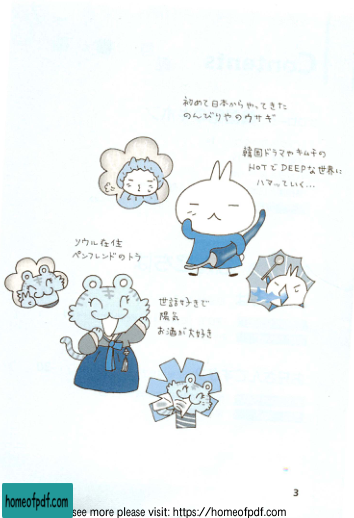 初めて日本からやってきた
のんびりやのウサギ
韓国ドラマやキムチの
HOTでDEEPな世界に
ハマっていく…
ソウル在住
ペンフレンドのトラ
世話好きで
陽気
お酒が大好き
3
homeofpdf.com
see more please visit: https://homeofpdf.com